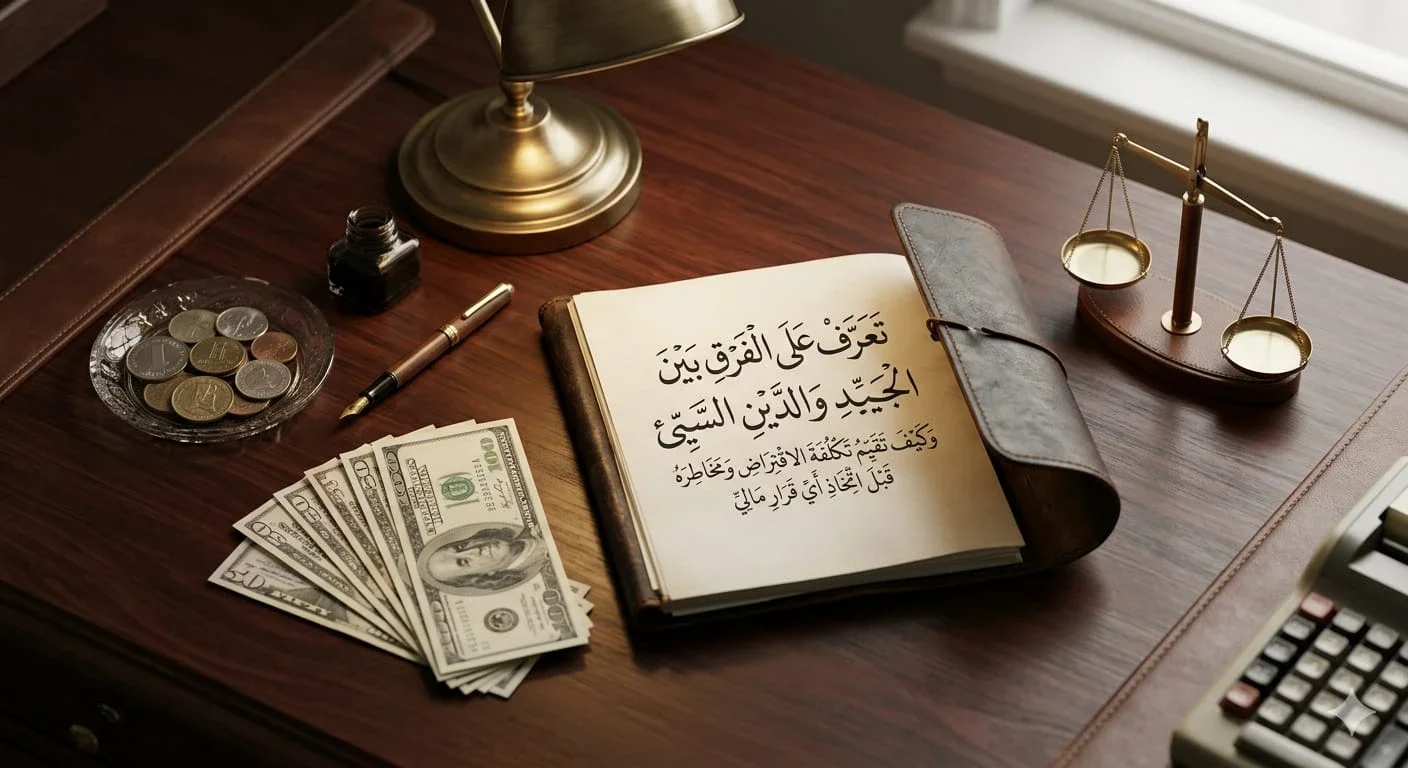 تَعَرَّفْ عَلَى الْفَرْقِ بَيْنَ
الْجَيِّدِ وَالدَّيْنِ السَّيِّئِ
وَكَيْفَ تَقَيِّمُ تَكْلُفَةَ الاقْتِرَاضِ وَمَخَاطِرَهُ
قَبْلَ اتِّخَاذِ أَيِّ قَرَارٍ مَالِيٍّ
100
100
50